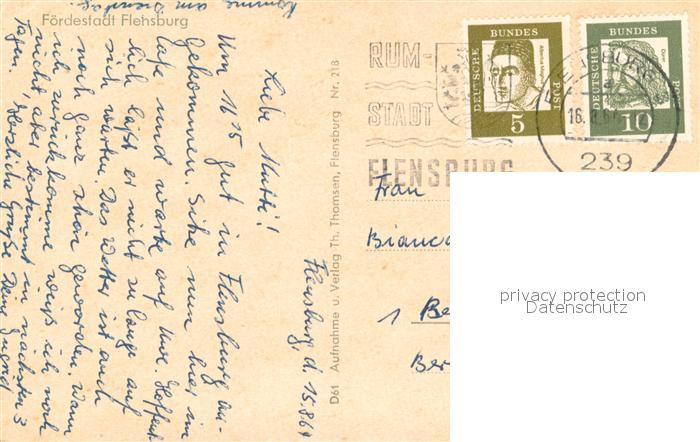 Fördestadt Flensburg
Flensburg, d. 15.8.64
Liebe Mutti!
Um 16 15 gut in Flensburg an-
gekommen. Sitze nun hier im
Cafe und warte auf Uwe. Hoffent-
lich läßt er nicht zu lange auf
sich warten. Das Wetter ist auch
noch ganz schön geworden. Wann
ich zurückkomme weiß ich noch
nicht, aber bestimmt in nächsten 3
Tagen. Herzliche Grüße Deine
Komme am Dienstag.
D61 Aufnahme u. Verlag Th. Thomsen, Flensburg Nr. 218
RUM-
STADT
FLENSBURG
DEUTSCHE BUNDES POST
5
DEUTSCHE BUNDES POST
10
FLENSBURG
239
Frau
Bianca
1 Be
Ber
privacy protection
Datenschutz